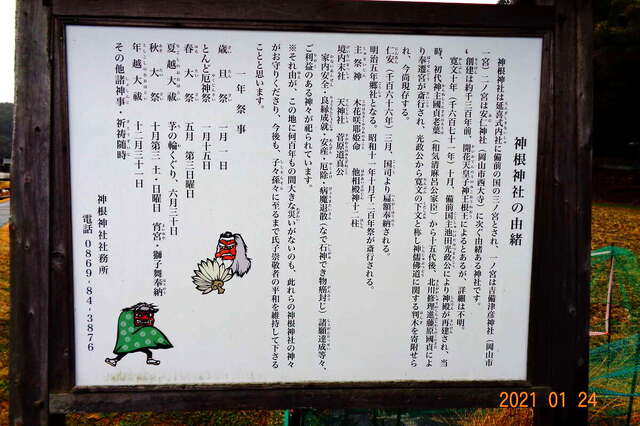 神根神社の由緒
神根神社は延喜式内社に備前の国の三ノ宮とされ、一ノ宮は吉備津彦神社(岡山市
一宮)二ノ宮は安仁神社(岡山市西大寺)に次ぐ由緒ある神社です。
創建は約千三百年前、開花天皇子神王根王によるとあるが、詳細は不明。
寛文十年(千六百七十一年)十月、備前国主池田光政公により神殿が再建され、当
時、初代神主國貞老葉(和気清麻呂公家臣)から十五代後、北川修理進藤原國貞によ
り奉遷宮が斎行され、光政公から寛文の下文と称し神儒佛道に関する判木を寄附せら
れ、今尚現存する。
仁安(千百六十六年)三月、国司より扁額奉納される。
明治五年郷社となる。昭和十一年十月千二百年祭が斎行される。
主祭神 木花咲耶姫命 他相殿神十二柱
境内末社 天神社 菅原道真公
家内安全・良縁成就・安産・厄除・病魔退散(なで石神でき物癌封じ)諸願達成等々、
ご利益のある神々が祀られています。
※それ由が、この地に何百年もの間大きな災いがないのも、此れらの神根神社の神々
がお守りくださり、今後も、子々孫々に至るまで氏子崇敬者の平和を維持して下さる
ことと思います。
一年祭事
歳旦祭 一月一日
とんど厄神祭 一月十五日
春大祭 五月 第三日曜日
夏越大祓 茅の輪くぐり、六月三十日
秋大祭 十月第三 土・日曜日 宵宮・獅子舞奉納
年越大祓 十二月三十一日
その他諸神事・祈祷随時
神根神社社務所
電話 0869-84-3876
2021 01 24